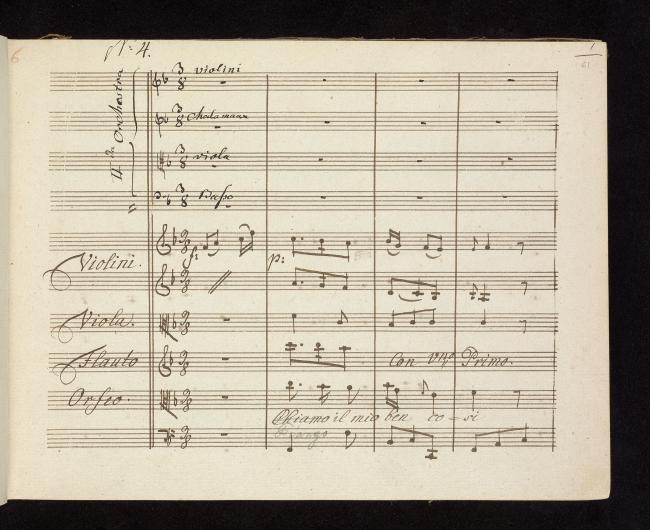 6
No. 4.
1
61
IIda Orchestra
Violini
Chalamaux
Viola
Basso
Violini.
f:
p:
Viola.
Flauto
Con Vno Primo.
Orfeo.
Chiamo il mio ben co - si